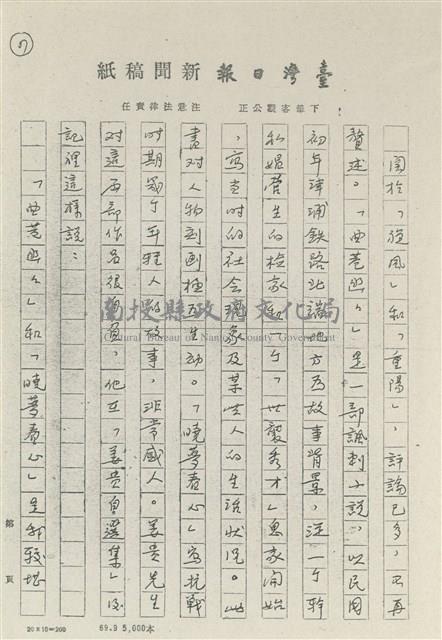 ⑰
臺灣日報新聞稿紙
下筆客觀公正　注意法律責任
關於「旋風」和「重陽」，評論已多，不再
贅述。「曲巷幽幽」是一部諷刺小說，以民國
初年津浦鐵路北端地方為故事背景，從一个幹
私娼營生的
，寫當時的社會現象及某些人的生活狀況。此
書對人物刻画極其生動。「曉夢春心」寫抗戰
时期幾个年輕人的故事，非常感人。姜貴先生
对這兩部作品很自負，他在「姜貴自選集」後
記裡這樣說：
「曲巷幽幽」和「曉夢春心」是我較堪
南投縣政府文化局
Cultural Bureau of Nantou County Government
第　頁
20×10=200
69.9 5,000本